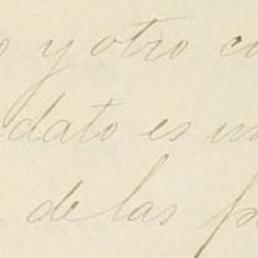 o y otro co
dato es un
de las p